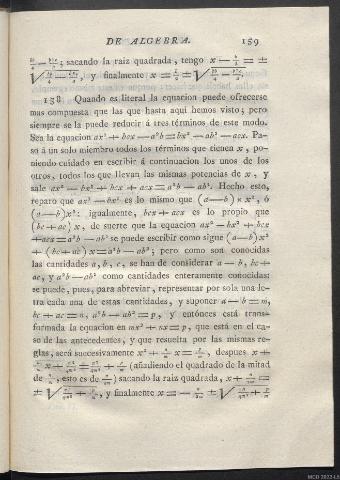 DE ALGEBRA. 159
; sacando la raiz quadrada, tengo x — b/2 = ±
, y finalmente x = b/2 ±
138. Quando es literal la equacion puede ofrecerse
mas compuesta que las que hasta aquí hemos visto; pero
siempre se la puede reducir á tres términos de este modo.
Sea la equacion ax² + bcx — a²b = bx² — ab² — acx. Pa-
so á un solo miembro todos los términos que tienen x, po-
niendo cuidado en escribir á continuacion los unos de los
otros, todos los que llevan las mismas potencias de x, y
sale ax² — bx² + bcx + acx = a²b — ab². Hecho esto,
reparo que ax² — bx² es lo mismo que (a — b) × x², ó
(a — b)x²: igualmente, bcx + acx es lo propio que
(bc + ac) x, de suerte que la equacion ax² — bx² + bcx
+ acx = a²b — ab² se puede escribir como sigue (a — b)x²
+ (bc + ac) x = a²b — ab²; pero como son conocidas
las cantidades a, b, c, se han de considerar a — b, bc +
ac, y a²b — ab² como cantidades enteramente conocidas;
se puede, pues, para abreviar, representar por sola una le-
tra cada una de estas cantidades, y suponer a — b = m,
bc + ac = n, a²b — ab² = p, y entónces está trans-
formada la equacion en mx² + nx = p, que está en el ca-
so de las antecedentes, y que resuelta por las mismas re-
glas, será succesivamente x² + n/m x = p/m, despues x² +
n/m x + n²/4m² = n²/4m² + p/m (añadiendo el quadrado de la mitad
de n/m, esto es de n/2m) sacando la raiz quadrada, x + n/2m =
± √ n²/4m² + p/m, y finalmente x = — n/2m ± √ n²/4m² + p/m
MCD 2022-L5